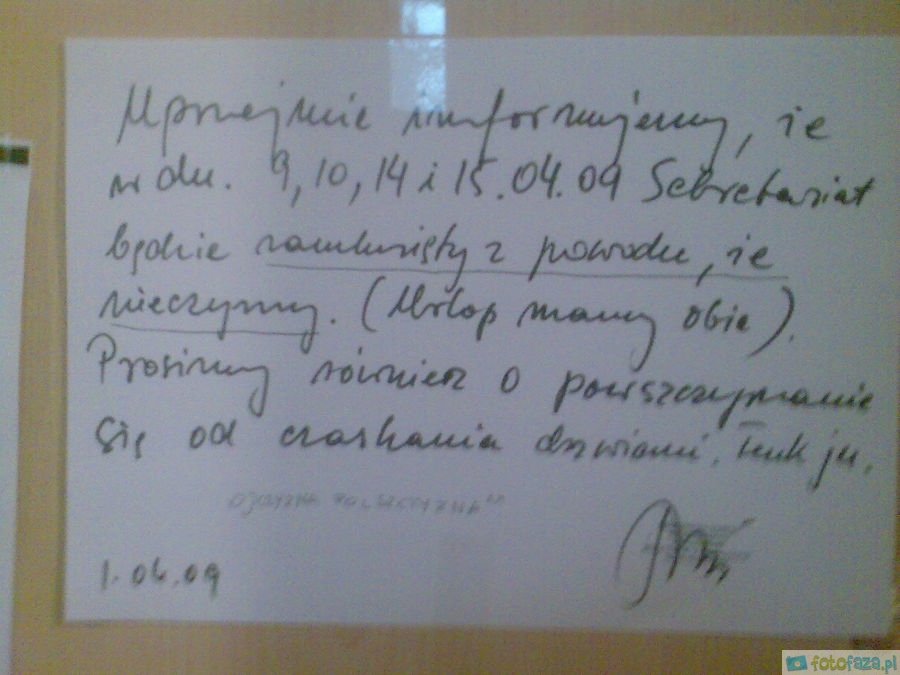 Uprzejmie imformujemy, że
w dn. 9, 10, 14 i 15.04.09 Sekretariat
będzie zamknięty z powodu, że
nieczynny. (Urlop mamy obie).
Prosimy również o powszczymanie
się od czaskania dzwiami. Tenk ju.
OJCZYZNA POLSZCZYZNA
1.04.09
fotofaza.pl